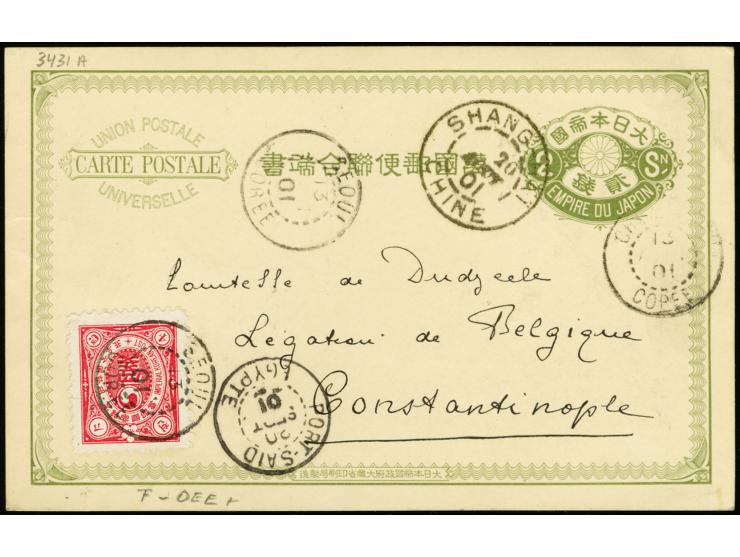 3431 A
UNION POSTALE
CARTE POSTALE
UNIVERSELLE
萬國郵便聯合端書
大日本帝國
Sn
貳錢
EMPIRE DU JAPON
SEOUL
13
01
COREE
SHANG
01
CHINE
13
01
COREE
Comtesse de Dudzeele
Légation de Belgique
Constantinople
SEOUL
13
01
PORT-SAID
01
EGYPTE
大日本帝國政府大藏省印刷局製造